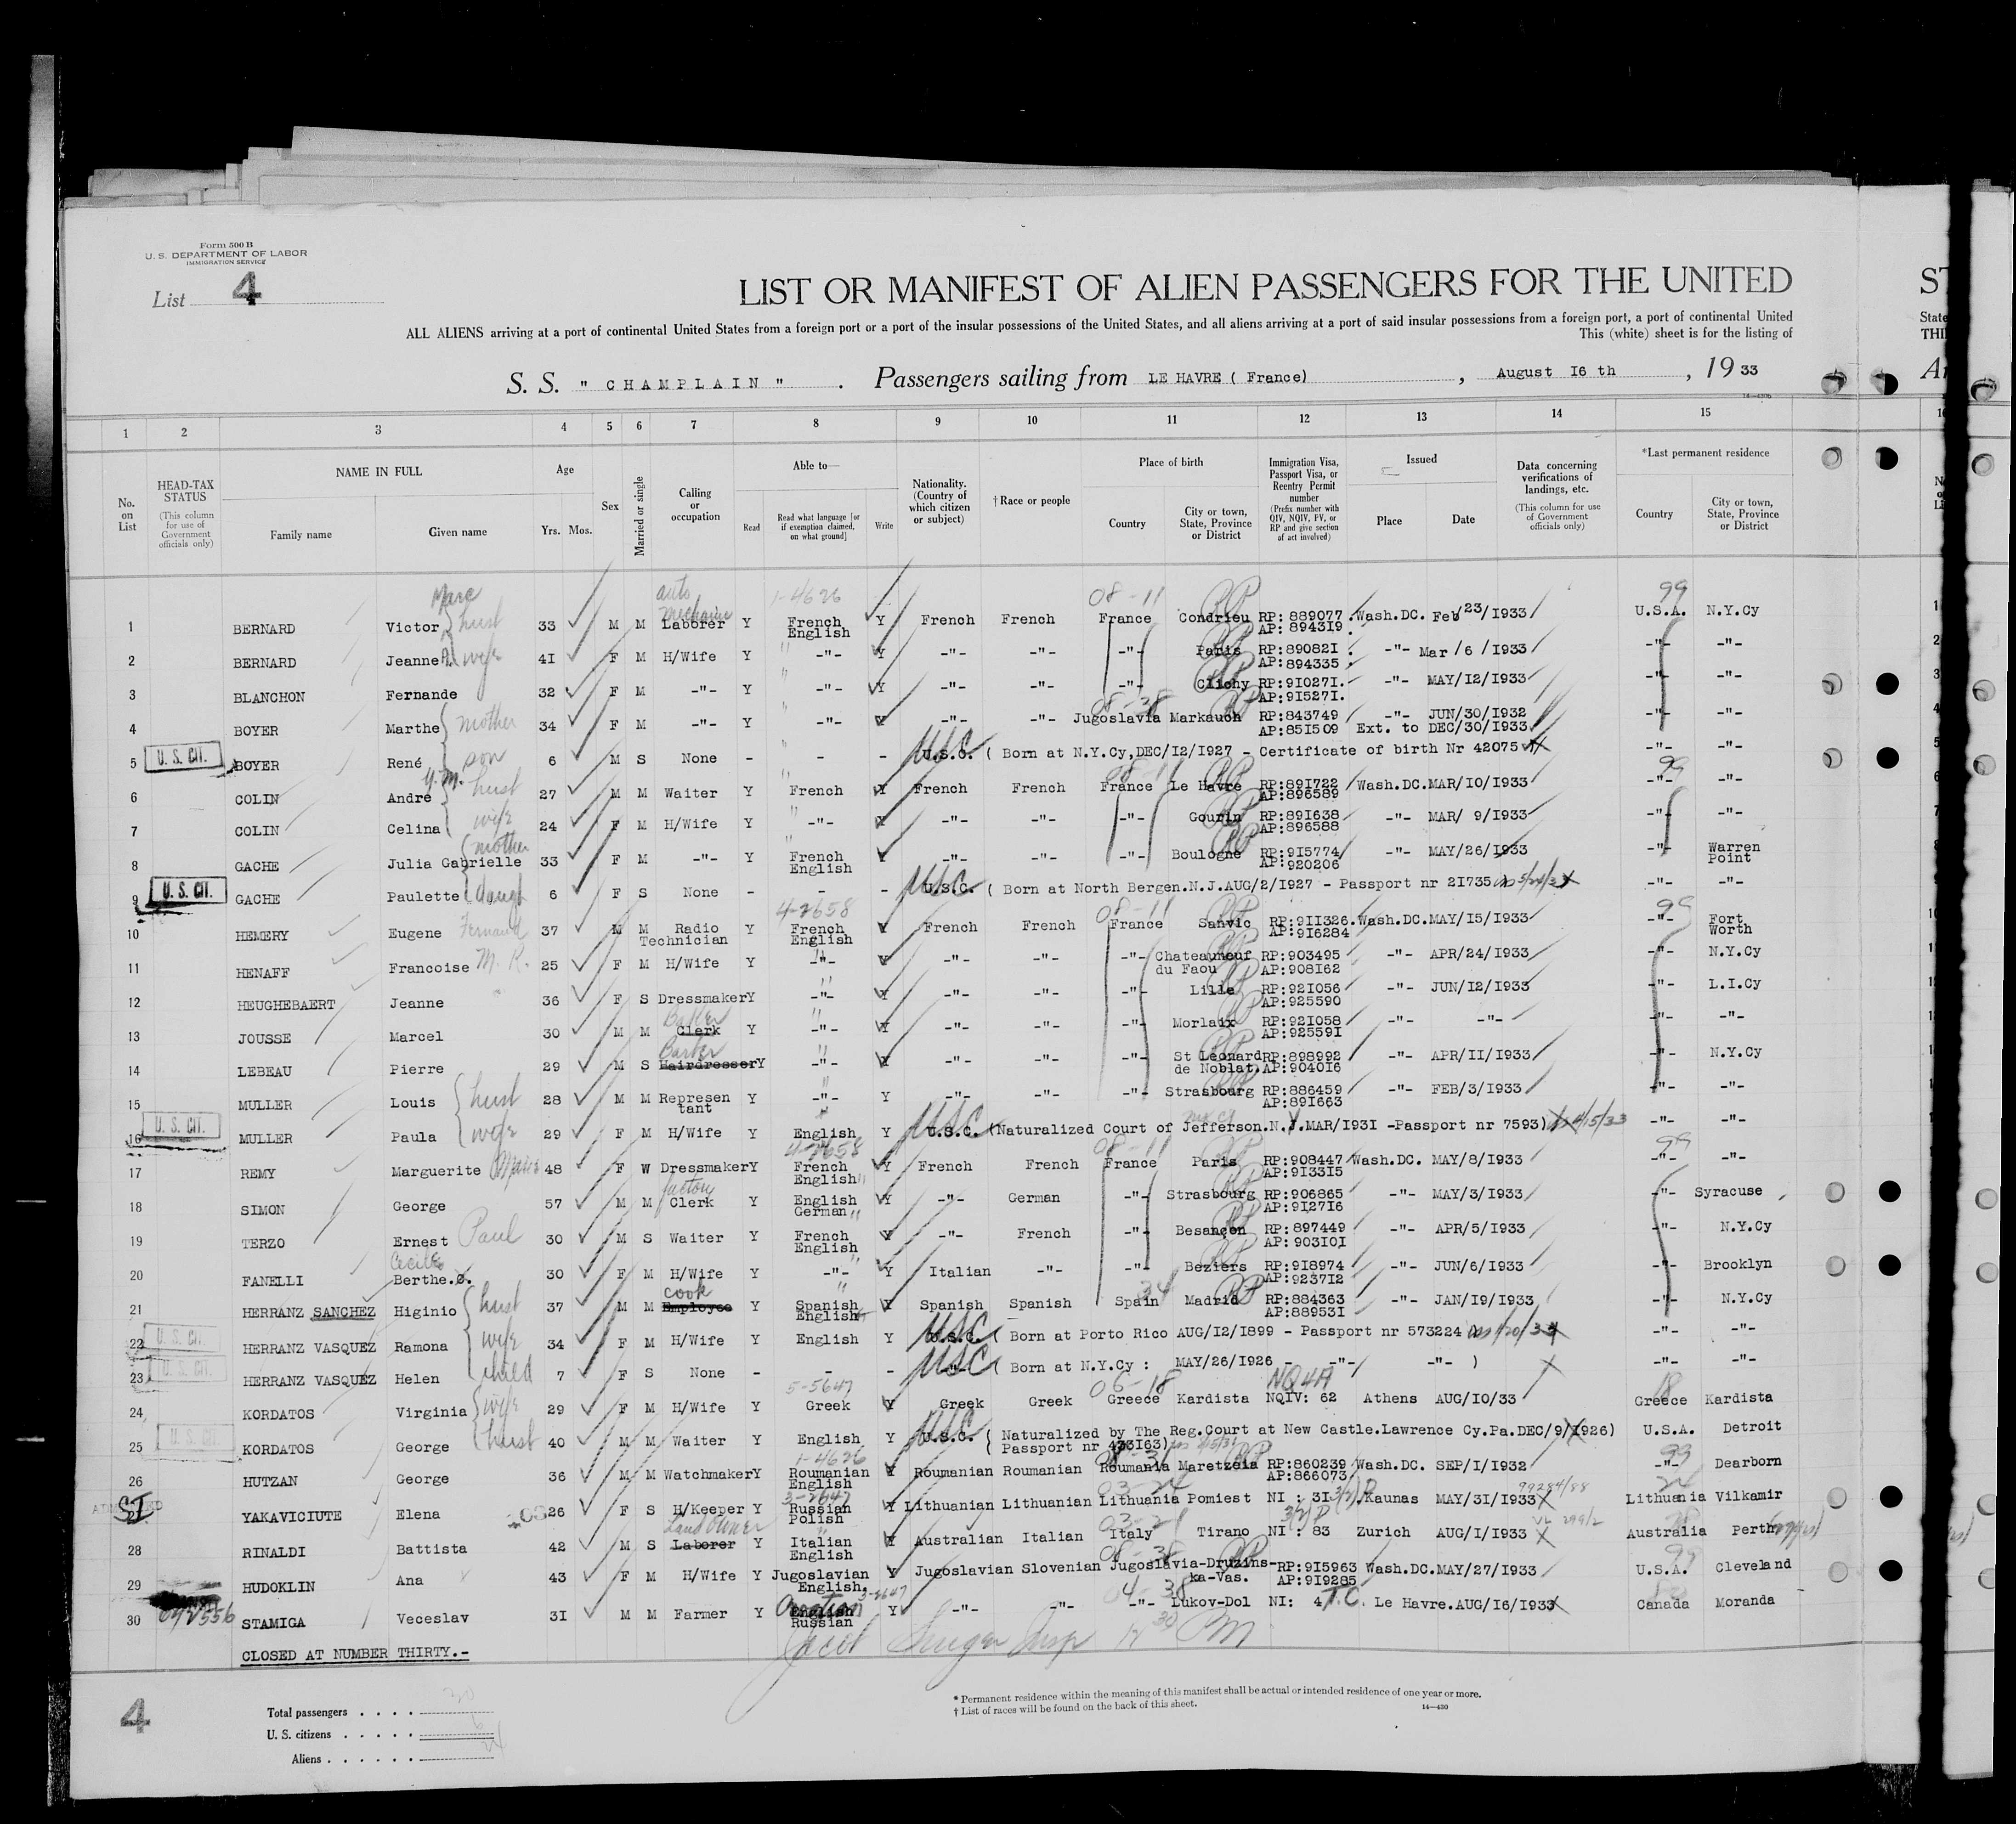 Form 500 B
U. S. DEPARTMENT OF LABOR
IMMIGRATION SERVICE
List 4
LIST OR MANIFEST OF ALIEN PASSENGERS FOR THE UNITED
ST
ALL ALIENS arriving at a port of continental United States from a foreign port or a port of the insular possessions of the United States, and all aliens arriving at a port of said insular possessions from a foreign port, a port of continental United
State
This (white) sheet is for the listing of
THI
S. S. " CHAMPLAIN " . Passengers sailing from LE HAVRE ( France) , August I6 th , 19 33
14—430b
1 2 3 4 5 6 7 8 9 10 11 12 13 14 15
No. on List
HEAD-TAX STATUS (This column for use of Government officials only)
NAME IN FULL
Family name
Given name
Age
Yrs. Mos.
Sex
Married or single
Calling or occupation
Able to—
Read
Read what language [or if exemption claimed, on what ground]
Write
Nationality. (Country of which citizen or subject)
†Race or people
Place of birth
Country
City or town, State, Province or District
Immigration Visa, Passport Visa, or Reentry Permit number (Prefix number with QIV, NQIV, PV, or RP and give section of act involved)
Issued
Place
Date
Data concerning verifications of landings, etc. (This column for use of Government officials only)
*Last permanent residence
Country
City or town, State, Province or District
Marc auto mechanic 1-4626 08-11 RP 99
1 BERNARD Victor hust 33 M M Laborer Y French English Y French French France Condrieu RP: 889077 AP: 8943I9 Wash.DC. Feb/23/I933 U.S.A. N.Y.Cy
2 BERNARD Jeanne wife 4I F M H/Wife Y -"- Y -"- -"- -"- Paris RP:89082I AP:894335 -"- Mar /6 /I933 -"- -"-
3 BLANCHON Fernande 32 F M -"- Y -"- Y -"- -"- -"- Clichy RP:9I027I. AP:9I527I. -"- MAY/I2/I933 -"- -"-
08-38
4 BOYER Marthe mother 34 F M -"- Y -"- Y -"- -"- Jugoslavia Markauch RP:843749 AP:85I509 -"- JUN/30/I932 Ext. to DEC/30/I933 -"- -"-
5 U. S. CIT. BOYER René son 6 M S None - - - U.S.C. USC ( Born at N.Y.Cy,DEC/I2/I927 - Certificate of birth Nr 42075 -"- -"-
6 COLIN André Y.M. hust 27 M M Waiter Y French Y French French France Le Havre RP:89I722 AP:896589 Wash.DC.MAR/I0/I933 -"- -"-
7 COLIN Celina wife 24 F M H/Wife Y -"- Y -"- -"- -"- Gourin RP:89I638 AP:896588 -"- MAR/ 9/I933 -"- -"-
8 GACHE Julia Gabrielle mother 33 F M -"- Y French English Y -"- -"- -"- Boulogne RP:9I5774 AP:920206 -"- MAY/26/I933 -"- Warren Point
9 U. S. CIT. GACHE Paulette daugt 6 F S None - - - U.S.C. USC ( Born at North Bergen.N.J.AUG/2/I927 - Passport nr 2I735 -"- -"-
4-2658 08-11 99
10 HEMERY Eugene Fernand 37 M M Radio Technician Y French English Y French French France Sanvic RP:9II326. AP:9I6284 Wash.DC.MAY/I5/I933 -"- Fort Worth
11 HENAFF Francoise M. R. 25 F M H/Wife Y -"- Y -"- -"- -"- Chateauneuf du Faou RP:903495 AP:908I62 -"- APR/24/I933 -"- N.Y.Cy
12 HEUGHEBAERT Jeanne 36 F S Dressmaker Y -"- Y -"- -"- -"- Lille RP:92I056 AP:925590 -"- JUN/I2/I933 -"- L.I.Cy
13 JOUSSE Marcel 30 M M Clerk Y -"- Y -"- -"- -"- Morlaix RP:92I058 AP:92559I -"- -"- -"- -"-
14 LEBEAU Pierre 29 M S Hairdresser Barber Y -"- Y -"- -"- -"- St Léonard de Noblat RP:898992 AP:9040I6 -"- APR/II/I933 -"- N.Y.Cy
15 MULLER Louis hust 28 M M Representant Y -"- Y -"- -"- -"- Strasbourg RP:886459 AP:89I663 -"- FEB/3/I933 -"- -"-
16 U. S. CIT. MULLER Paula wife 29 F M H/Wife Y English Y U.S.C. USC (Naturalized Court of Jefferson.N.Y.MAR/I93I -Passport nr 7593) 4/15/33 -"- -"-
08-11 99
17 REMY Marguerite Marie 48 F W Dressmaker Y French English Y French French France Paris RP:908447 AP:9I33I5 Wash.DC. MAY/8/I933 -"- -"-
18 SIMON George 57 M M Clerk Y English German Y -"- German -"- Strasbourg RP:906865 AP:9I27I6 -"- MAY/3/I933 -"- Syracuse
19 TERZO Ernest Paul 30 M S Waiter Y French English Y -"- French -"- Besançon RP: 897449 AP: 903I0I -"- APR/5/I933 -"- N.Y.Cy
20 FANELLI Berthe. Cecile 30 F M H/Wife Y -"- Y Italian -"- -"- Beziers RP:9I8974 AP:9237I2 -"- JUN/6/I933 -"- Brooklyn
21 HERRANZ SANCHEZ Higinio hust 37 M M Employee cook Y Spanish English Y Spanish Spanish Spain 34 Madrid RP:884363 AP:88953I -"- JAN/I9/I933 -"- N.Y.Cy
22 U. S. CIT. HERRANZ VASQUEZ Ramona wife 34 F M H/Wife Y English Y U.S.C. USC ( Born at Porto Rico AUG/I2/I899 - Passport nr 573224 -"- -"-
23 U. S. CIT. HERRANZ VASQUEZ Helen child 7 F S None - - - -"- USC ( Born at N.Y.Cy : MAY/26/I926 - -"- -"- ) -"- -"-
5-5647 06-18 NQ4A 18
24 KORDATOS Virginia wife 29 F M H/Wife Y Greek Y Greek Greek Greece Kardista NQIV: 62 Athens AUG/I0/33 Greece Kardista
25 U. S. CIT. KORDATOS George hust 40 M M Waiter Y English Y U.S.C. USC ( Naturalized by The Reg.Court at New Castle.Lawrence Cy.Pa.DEC/9/I926) ( Passport nr 433I63) U.S.A. Detroit
1-4626 99
26 HUTZAN George 36 M M Watchmaker Y Roumanian English Y Roumanian Roumanian Roumania Maretzeia RP:860239 AP:866073 Wash.DC. SEP/I/I932 -"- Dearborn
3-2647 03-24 24
SI YAKAVICIUTE Elena 26 F S H/Keeper Y Russian Polish Y Lithuanian Lithuanian Lithuania Pomiest NI : 3I Kaunas MAY/3I/I933 Lithuania Vilkamir
28 RINALDI Battista 42 M S Laborer Land Owner Y Italian English Y Australian Italian Italy Tirano NI : 83 Zurich AUG/I/I933 Australia Perth
08-38 99
29 HUDOKLIN Ana 43 F M H/Wife Y Jugoslavian English. Y Jugoslavian Slovenian Jugoslavia-Druzinska-Vas. RP:9I5963 AP:9I9285 Wash.DC.MAY/27/I933 U.S.A. Cleveland
30 STAMIGA Veceslav 3I M M Farmer Y English Croatian Russian 3-2647 Y -"- -"- -"- Lukov-Dol NI: 4 T.C. Le Havre.AUG/I6/I933 Canada Moranda
CLOSED AT NUMBER THIRTY.-
Jacob Singer Insp 12 30 PM
4
Total passengers . . . . 30
U. S. citizens . . . . . 6
Aliens . . . . . . 24
* Permanent residence within the meaning of this manifest shall be actual or intended residence of one year or more.
† List of races will be found on the back of this sheet.
14—430